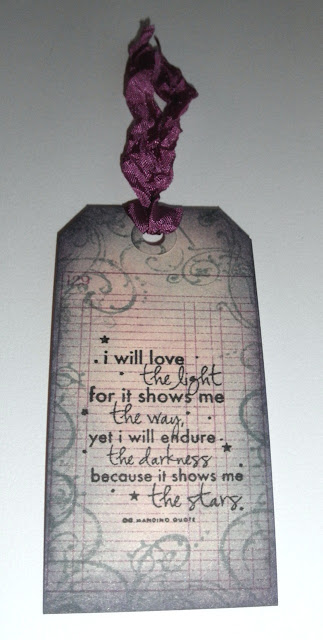 i will love
the light
for it shows me
the way,
yet i will endure
the darkness
because it shows me
the stars.
OG MANDINO QUOTE